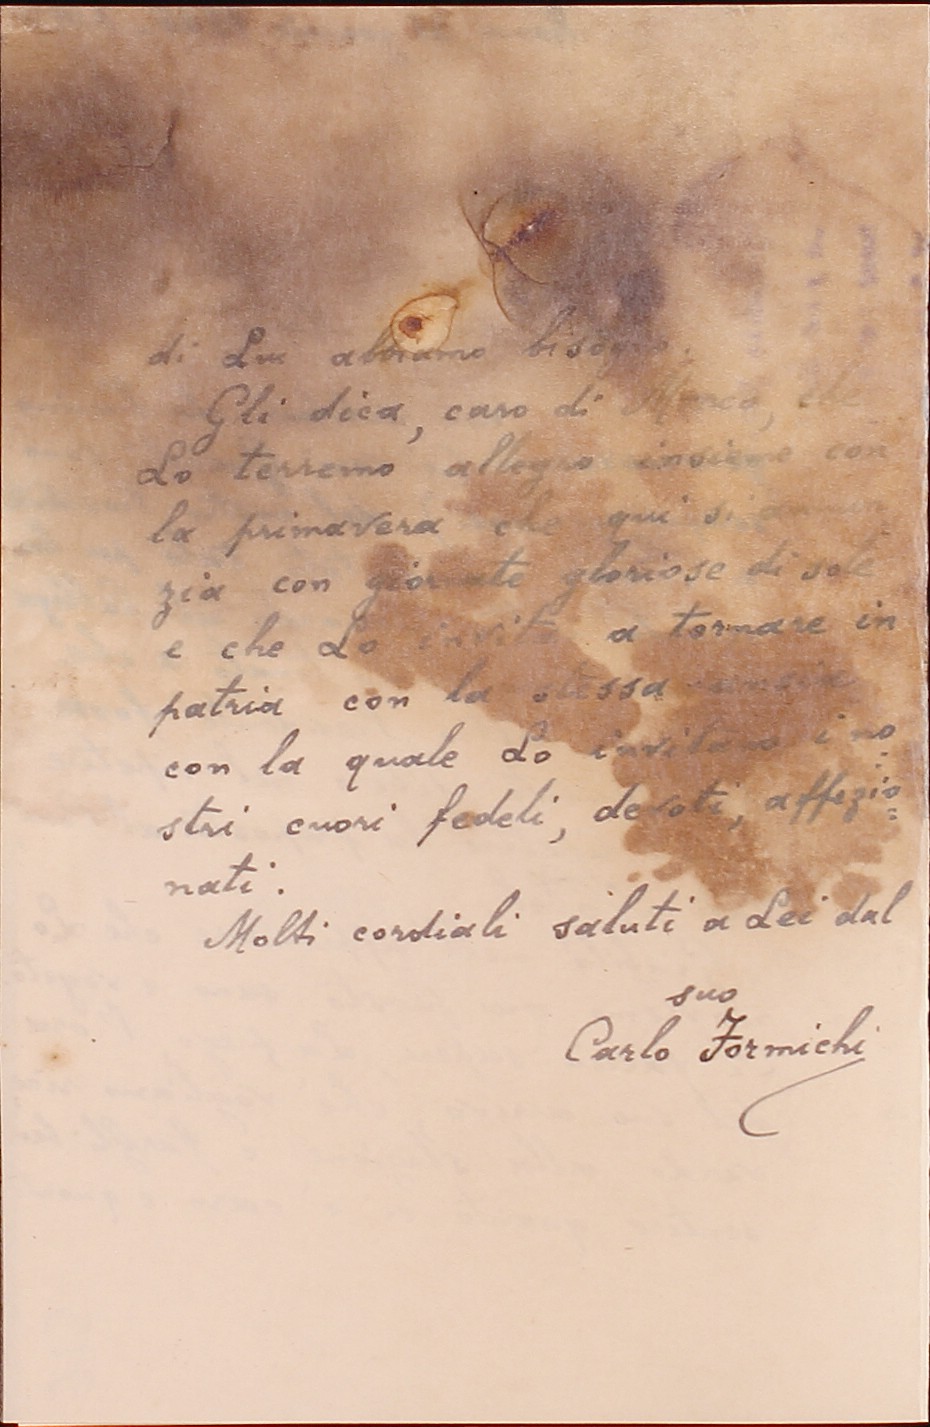 di Lui abbiamo bisogno.
Gli dica, caro di Marco, che
Lo terremo allegro insieme con
la primavera che qui si annun
zia con giornate gloriose di sole
e che Lo invita a tornare in
patria con la stessa
con la quale Lo invitano i no
stri cuori fedeli, devoti, affezio=
nati.
Molti cordiali saluti a Lei dal
suo
Carlo Formichi